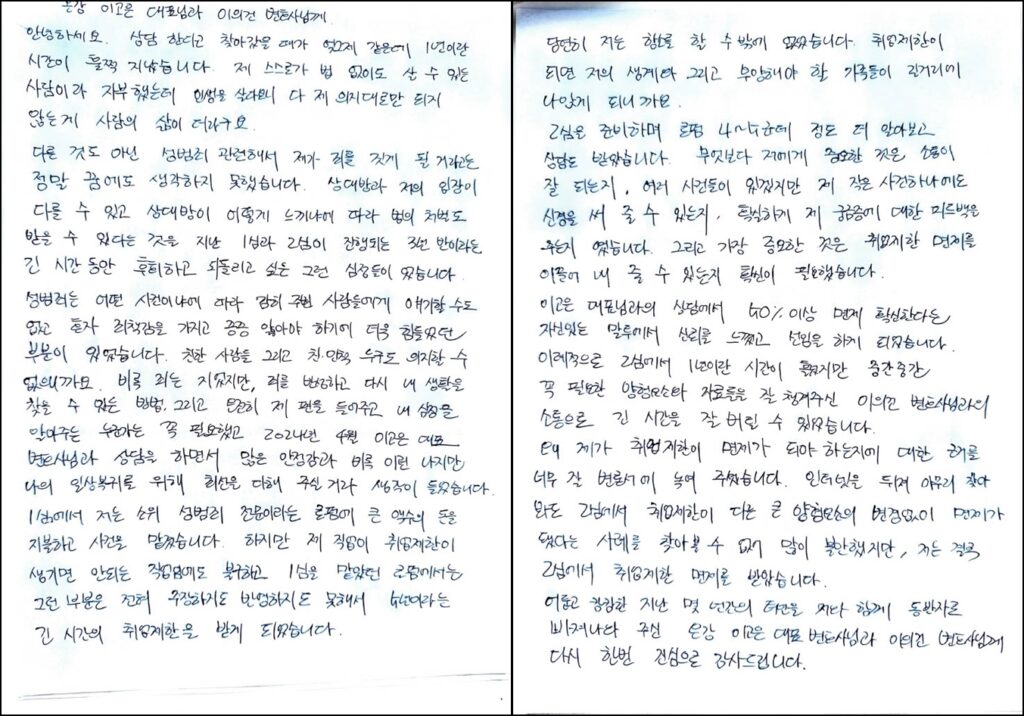 온강 이고은 대표님과 이의건 변호사님께.
안녕하세요. 상담 한다고 찾아갔을 때가 엊그제 같은데 1년이란
시간이 훌쩍 지났습니다. 제 스스로가 법 없이도 살 수 있는
사람이라 자부했는데 인생을 살다보니 다 제 의지대로만 되지
않는게 사람의 삶이 더라구요.
다른 것도 아닌 성범죄 관련해서 제가 죄를 짓게 될 거라고는
정말 꿈에도 생각하지 못했습니다. 상대방과 저의 입장이
다를 수 있고 상대방이 어떻게 느끼냐에 따라 법의 처벌도
받을 수 있다는 것을 지난 1심과 2심이 진행되는 3년 반이라는
긴 시간 동안 후회하고 되돌리고 싶은 그런 심정들이 있습니다.
성범죄는 어떤 사건이냐에 따라 감히 주변 사람들에게 얘기할 수도
없고 혼자 죄책감을 가지고 끙끙 앓아야 하기에 더욱 힘들었던
부분이 있었습니다. 친한 사람들 그리고 친·인척 누구도 의지할 수
없으니까요. 비록 죄는 지었지만, 죄를 반성하고 다시 내 생활을
찾을 수 있는 방법. 그리고 온전히 제 편을 들어주고 내 심정을
알아주는 누군가는 꼭 필요했고 2024년 4월 이고은 대표
변호사님과 상담을 하면서 많은 안정감과 비록 이런 나지만
나의 일상복귀를 위해 최선을 다해 주실 거라 생각이 들었습니다.
1심에서 저는 소위 성범죄 전문이라는 로펌에 큰 액수의 돈을
지불하고 사건을 맡겼습니다. 하지만 제 직업이 취업제한이
생기면 안되는 직업임에도 불구하고 1심을 맡았던 로펌에서는
그런 부분은 전혀 주장하지도 반영하지도 못해서 5년이라는
긴 시간의 취업제한을 받게 되었습니다.
당연히 저는 항소를 할 수 밖에 없었습니다. 취업제한이
되면 저의 생계와 그리고 부양해야 할 가족들이 길거리에
나앉게 되니까요.
2심을 준비하며 로펌 4~5군데 정도 더 알아보고
상담도 받았습니다. 무엇보다 저에게 중요한 것은 소통이
잘 되는지, 여러 사건들이 있겠지만 제 작은 사건하나에도
신경을 써 줄 수 있는지, 확실하게 제 궁금증에 대한 피드백을
주는지 였습니다. 그리고 가장 중요한 것은 취업제한 면제를
이끌어 내 줄 수 있는지 확신이 필요했습니다.
이고은 대표님과의 상담에서 50% 이상 면제 확신한다는
자신있는 말투에서 신뢰를 느끼고 선임을 하게 되었습니다.
이례적으로 2심에서 1년이란 시간이 흘렀지만 중간중간
꼭 필요한 양형요소와 자료들을 잘 챙겨주신 이의건 변호사님과의
소통으로 긴 시간을 잘 버틸 수 있었습니다.
또 제가 취업제한이 면제가 되야 하는지에 대한 이유를
너무 잘 변론서에 녹여 주셨습니다. 인터넷을 뒤져 아무리 찾아
봐도 2심에서 취업제한이 다른 큰 양형요소의 변경없이 면제가
됐다는 사례를 찾아볼 수 없어 많이 불안했지만, 저는 결국
2심에서 취업제한 면제를 받았습니다.
어둡고 캄캄한 지난 몇 년간의 터널을 저와 함께 동반자로
빠져나와 주신 온강 이고은 대표 변호사님과 이의건 변호사님께
다시 한번 진심으로 감사드립니다.